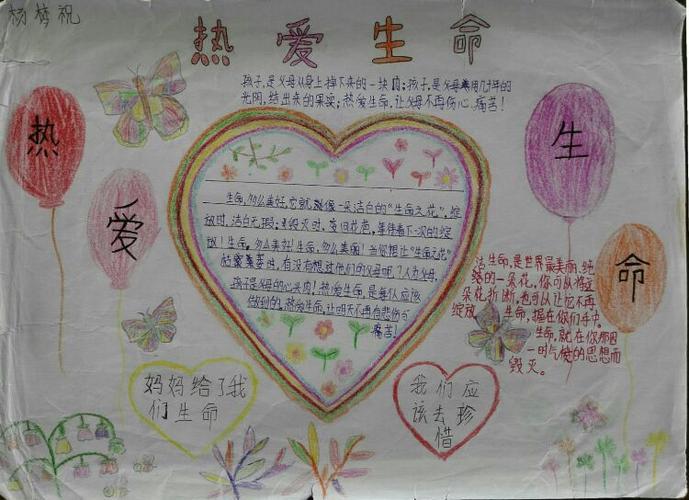 杨梦祝
热爱生命
孩子,是父母从身上掉下来的一块肉;孩子,是父母用几十年的
光阴,结出来的果实;热爱生命,让父母不再伤心、痛苦!
热
爱
生
命
生命,多么美好,它就像一朵洁白的“生命之花”,绽
放时,洁白无瑕;
放!生命,多么美好!生命,多么美丽!当你想让“生命之花”
有没有想过他们的父母呢?人为父母,
孩子是父母的心头肉!热爱生命,是每人应该
做到的。热爱生命,让明天不再有悲伤与
痛苦!
生命,是世界最美丽、绝
的一朵花,你可以将这
朵花折断,也可以让它不再
绽放。生命,握在你们手中。
生命,就在你那因
一时气馁的思想而
毁灭。
妈妈给了我
们生命
我们应
该去珍
惜